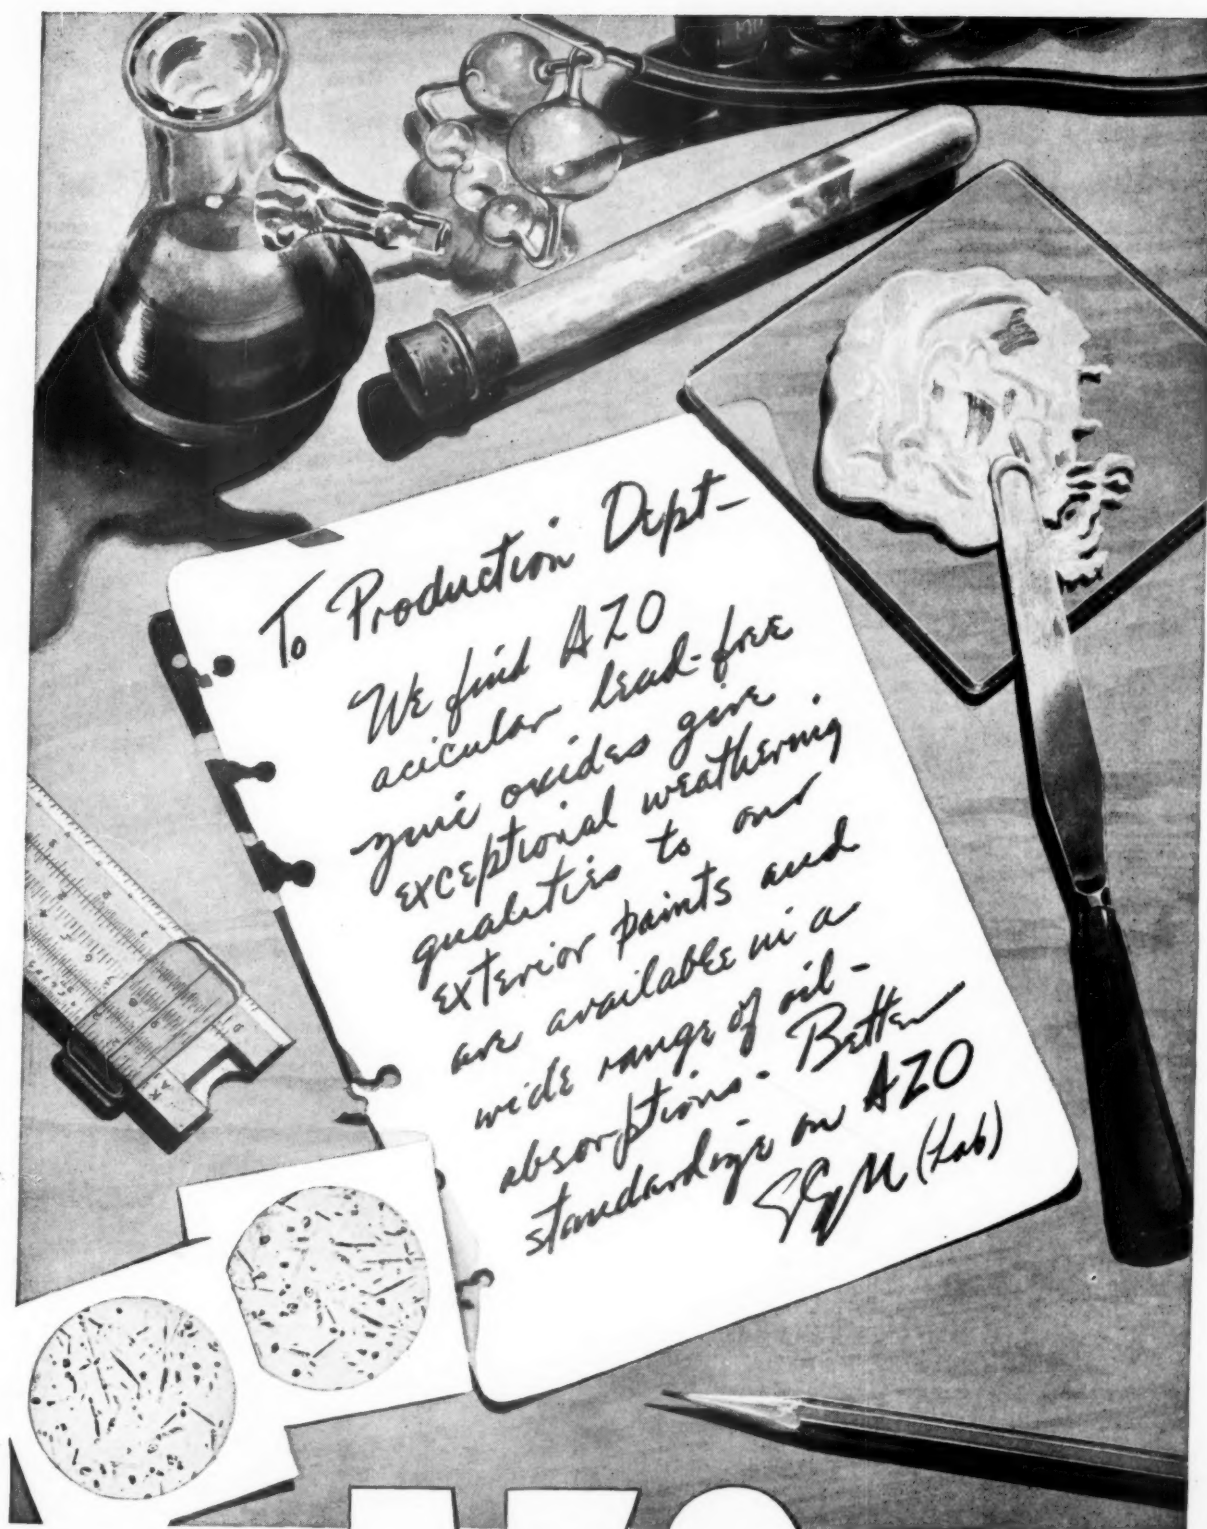 To Production Dept-
We find AZO
acicular lead-free
zinc oxides give
exceptional weathering
qualities to our
exterior paints and
are available in a
wide range of oil-
absorptions. Better
standardize on AZO
(Lab)
AZO